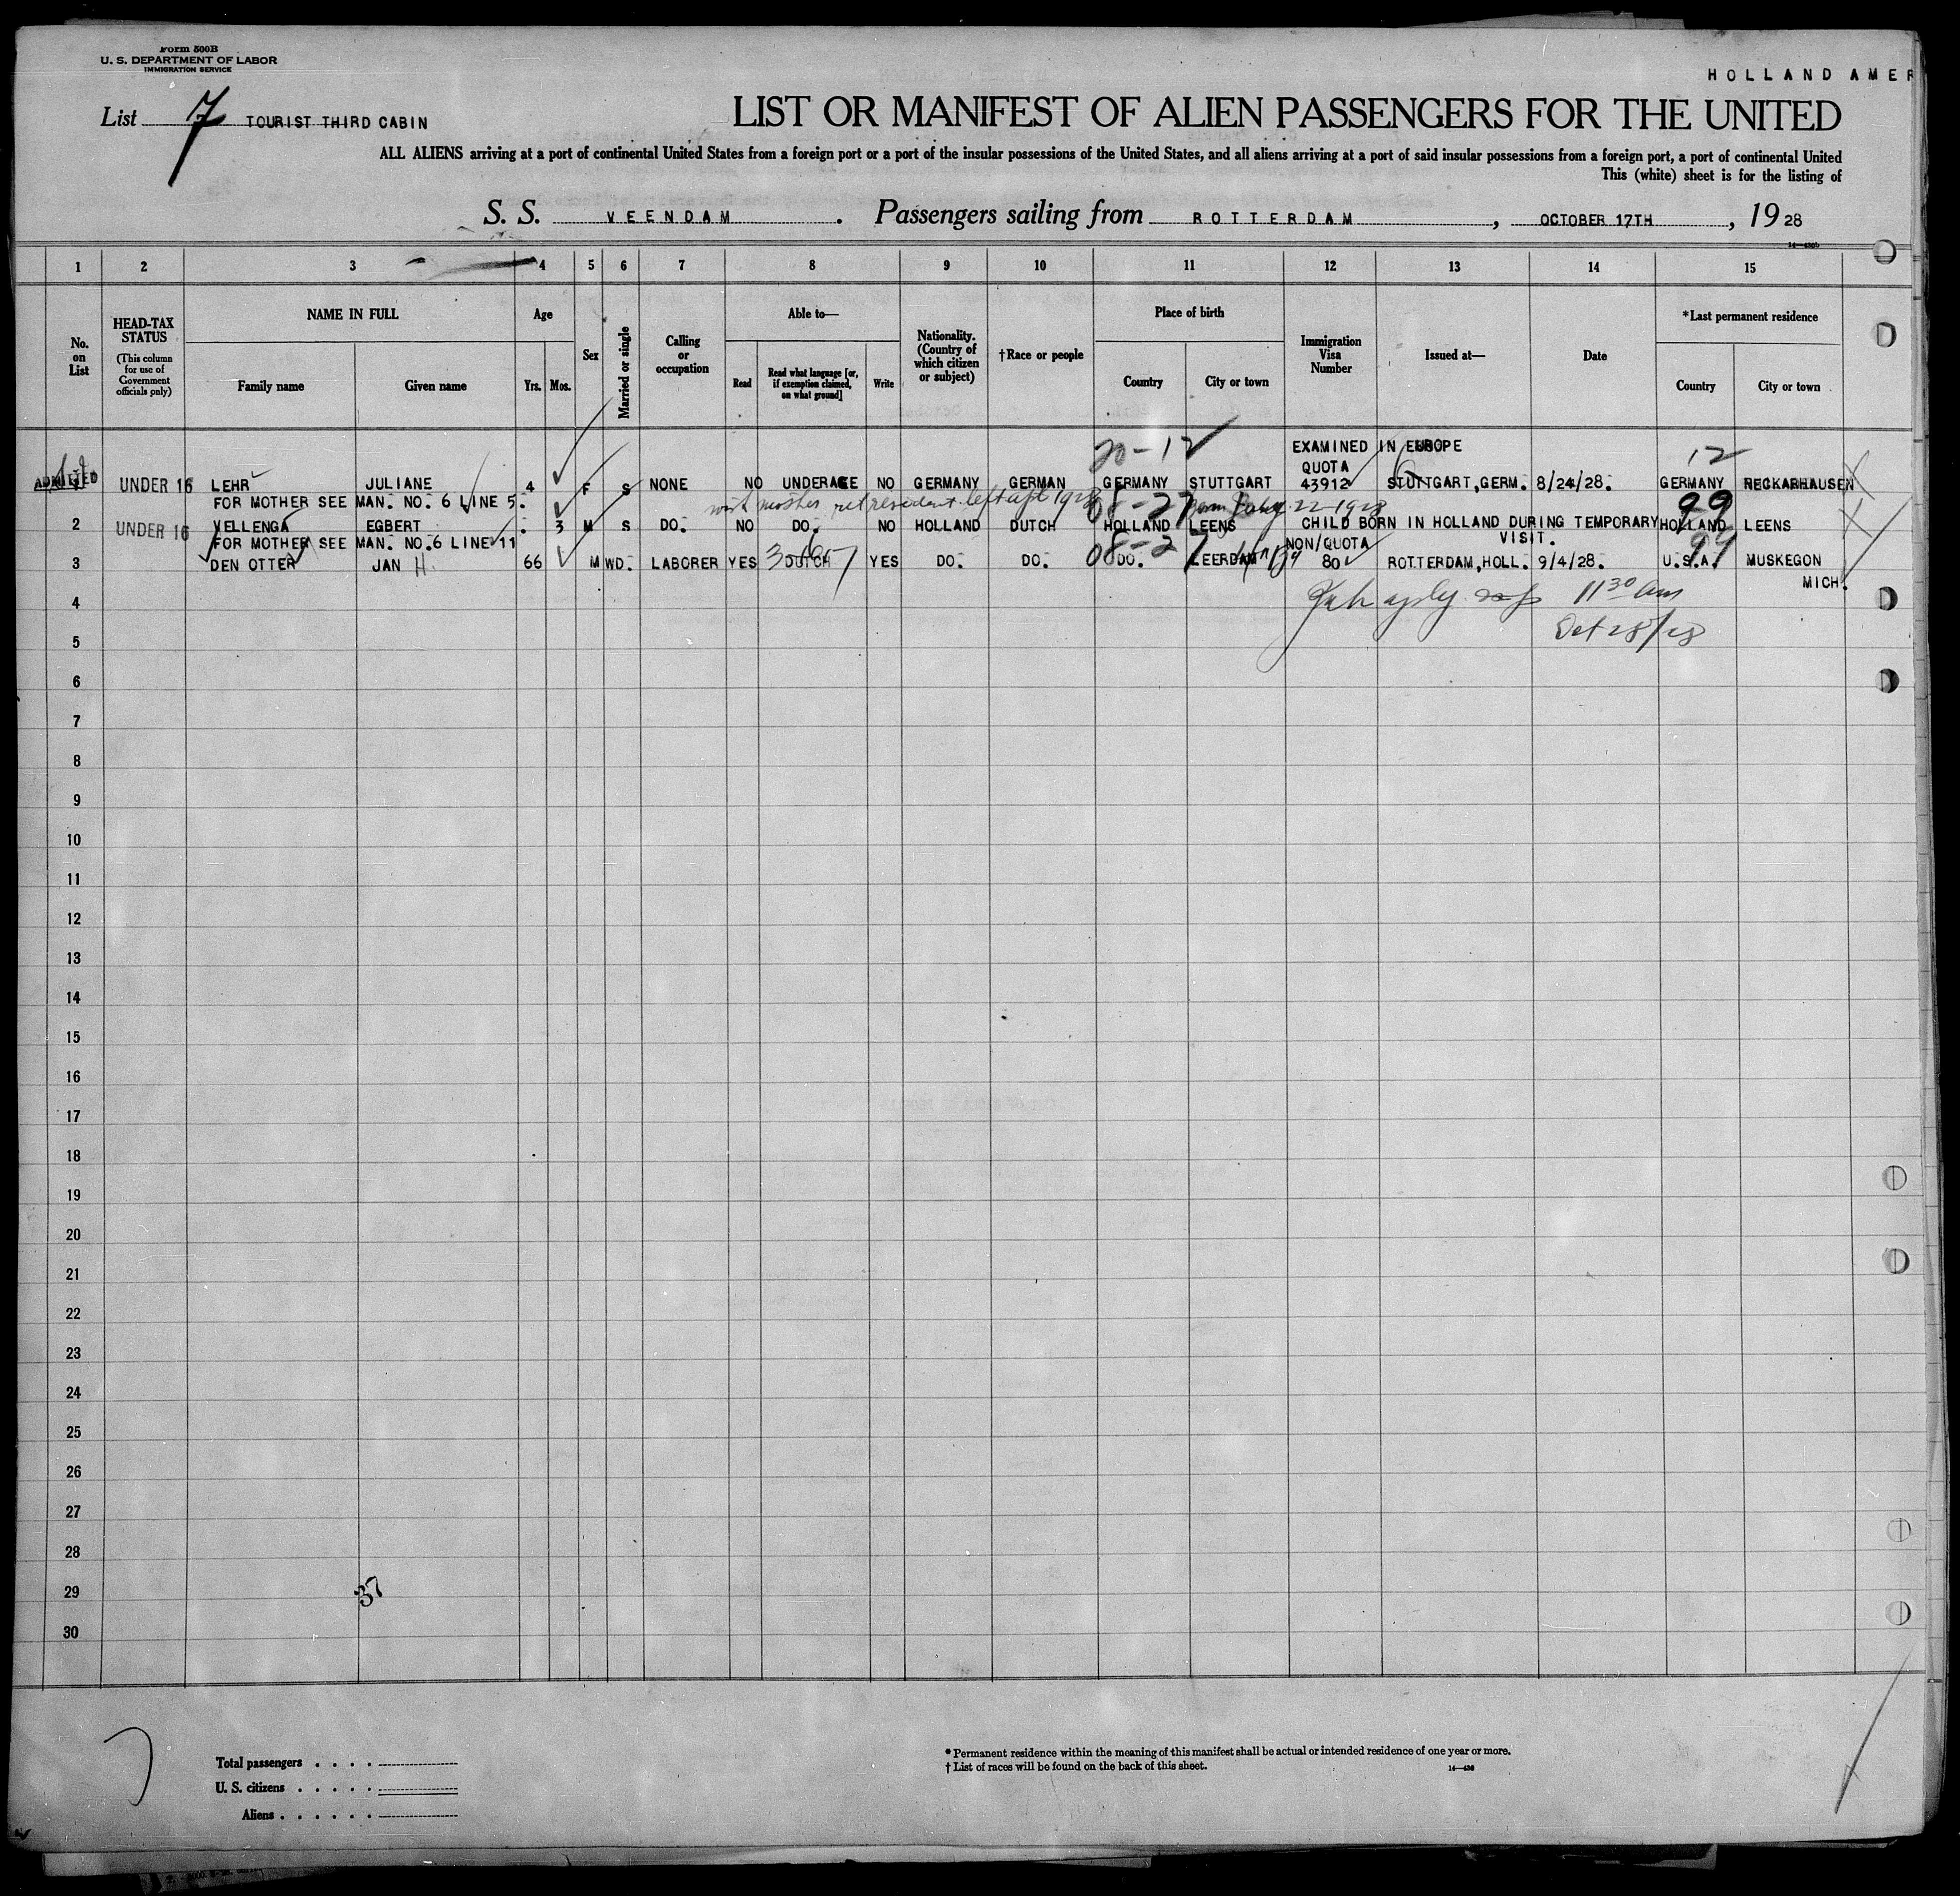 Form 500B
U. S. DEPARTMENT OF LABOR
IMMIGRATION SERVICE
HOLLAND AMER
List 7 TOURIST THIRD CABIN
LIST OR MANIFEST OF ALIEN PASSENGERS FOR THE UNITED
ALL ALIENS arriving at a port of continental United States from a foreign port or a port of the insular possessions of the United States, and all aliens arriving at a port of said insular possessions from a foreign port, a port of continental United
This (white) sheet is for the listing of
S. S. VEENDAM. Passengers sailing from ROTTERDAM, OCTOBER 17TH, 19 28
1 2 3 4 5 6 7 8 9 10 11 12 13 14 15
No. on List
HEAD-TAX STATUS (This column for use of Government officials only)
NAME IN FULL Family name Given name
Age Yrs. Mos.
Sex
Married or single
Calling or occupation
Able to— Read Read what language [or, if exemption claimed, on what ground] Write
Nationality. (Country of which citizen or subject)
†Race or people
Place of birth Country City or town
Immigration Visa Number
Issued at—
Date
*Last permanent residence Country City or town
20-12 EXAMINED IN EUROPE 12
QUOTA
ADMITTED UNDER 16 LEHR JULIANE 4 F S NONE NO UNDERAGE NO GERMANY GERMAN GERMANY STUTTGART 43912 STUTTGART, GERM. 8/24/28. GERMANY NECKARHAUSEN
FOR MOTHER SEE MAN. NO. 6 LINE 5. with mother ret resident left 1928 08-27 22 1928 99
2 UNDER 16 VELLENGA EGBERT . 3 M S DO. NO DO. NO HOLLAND DUTCH HOLLAND LEENS CHILD BORN IN HOLLAND DURING TEMPORARY VISIT. HOLLAND LEENS
FOR MOTHER SEE MAN. NO.6 LINE 11 08-27 NON/QUOTA 99
3 DEN OTTER JAN H. 66 M WD. LABORER YES DUTCH YES DO. DO. DO. LEERDAM 80 ROTTERDAM, HOLL. 9/4/28. U.S.A. MUSKEGON
MICH.
4 11 30 am
5 Oct 28/28
6
7
8
9
10
11
12
13
14
15
16
17
18
19
20
21
22
23
24
25
26
27
28
29
37
30
Total passengers . . . .
U. S. citizens . . . . .
Aliens . . . . . .
* Permanent residence within the meaning of this manifest shall be actual or intended residence of one year or more.
† List of races will be found on the back of this sheet.